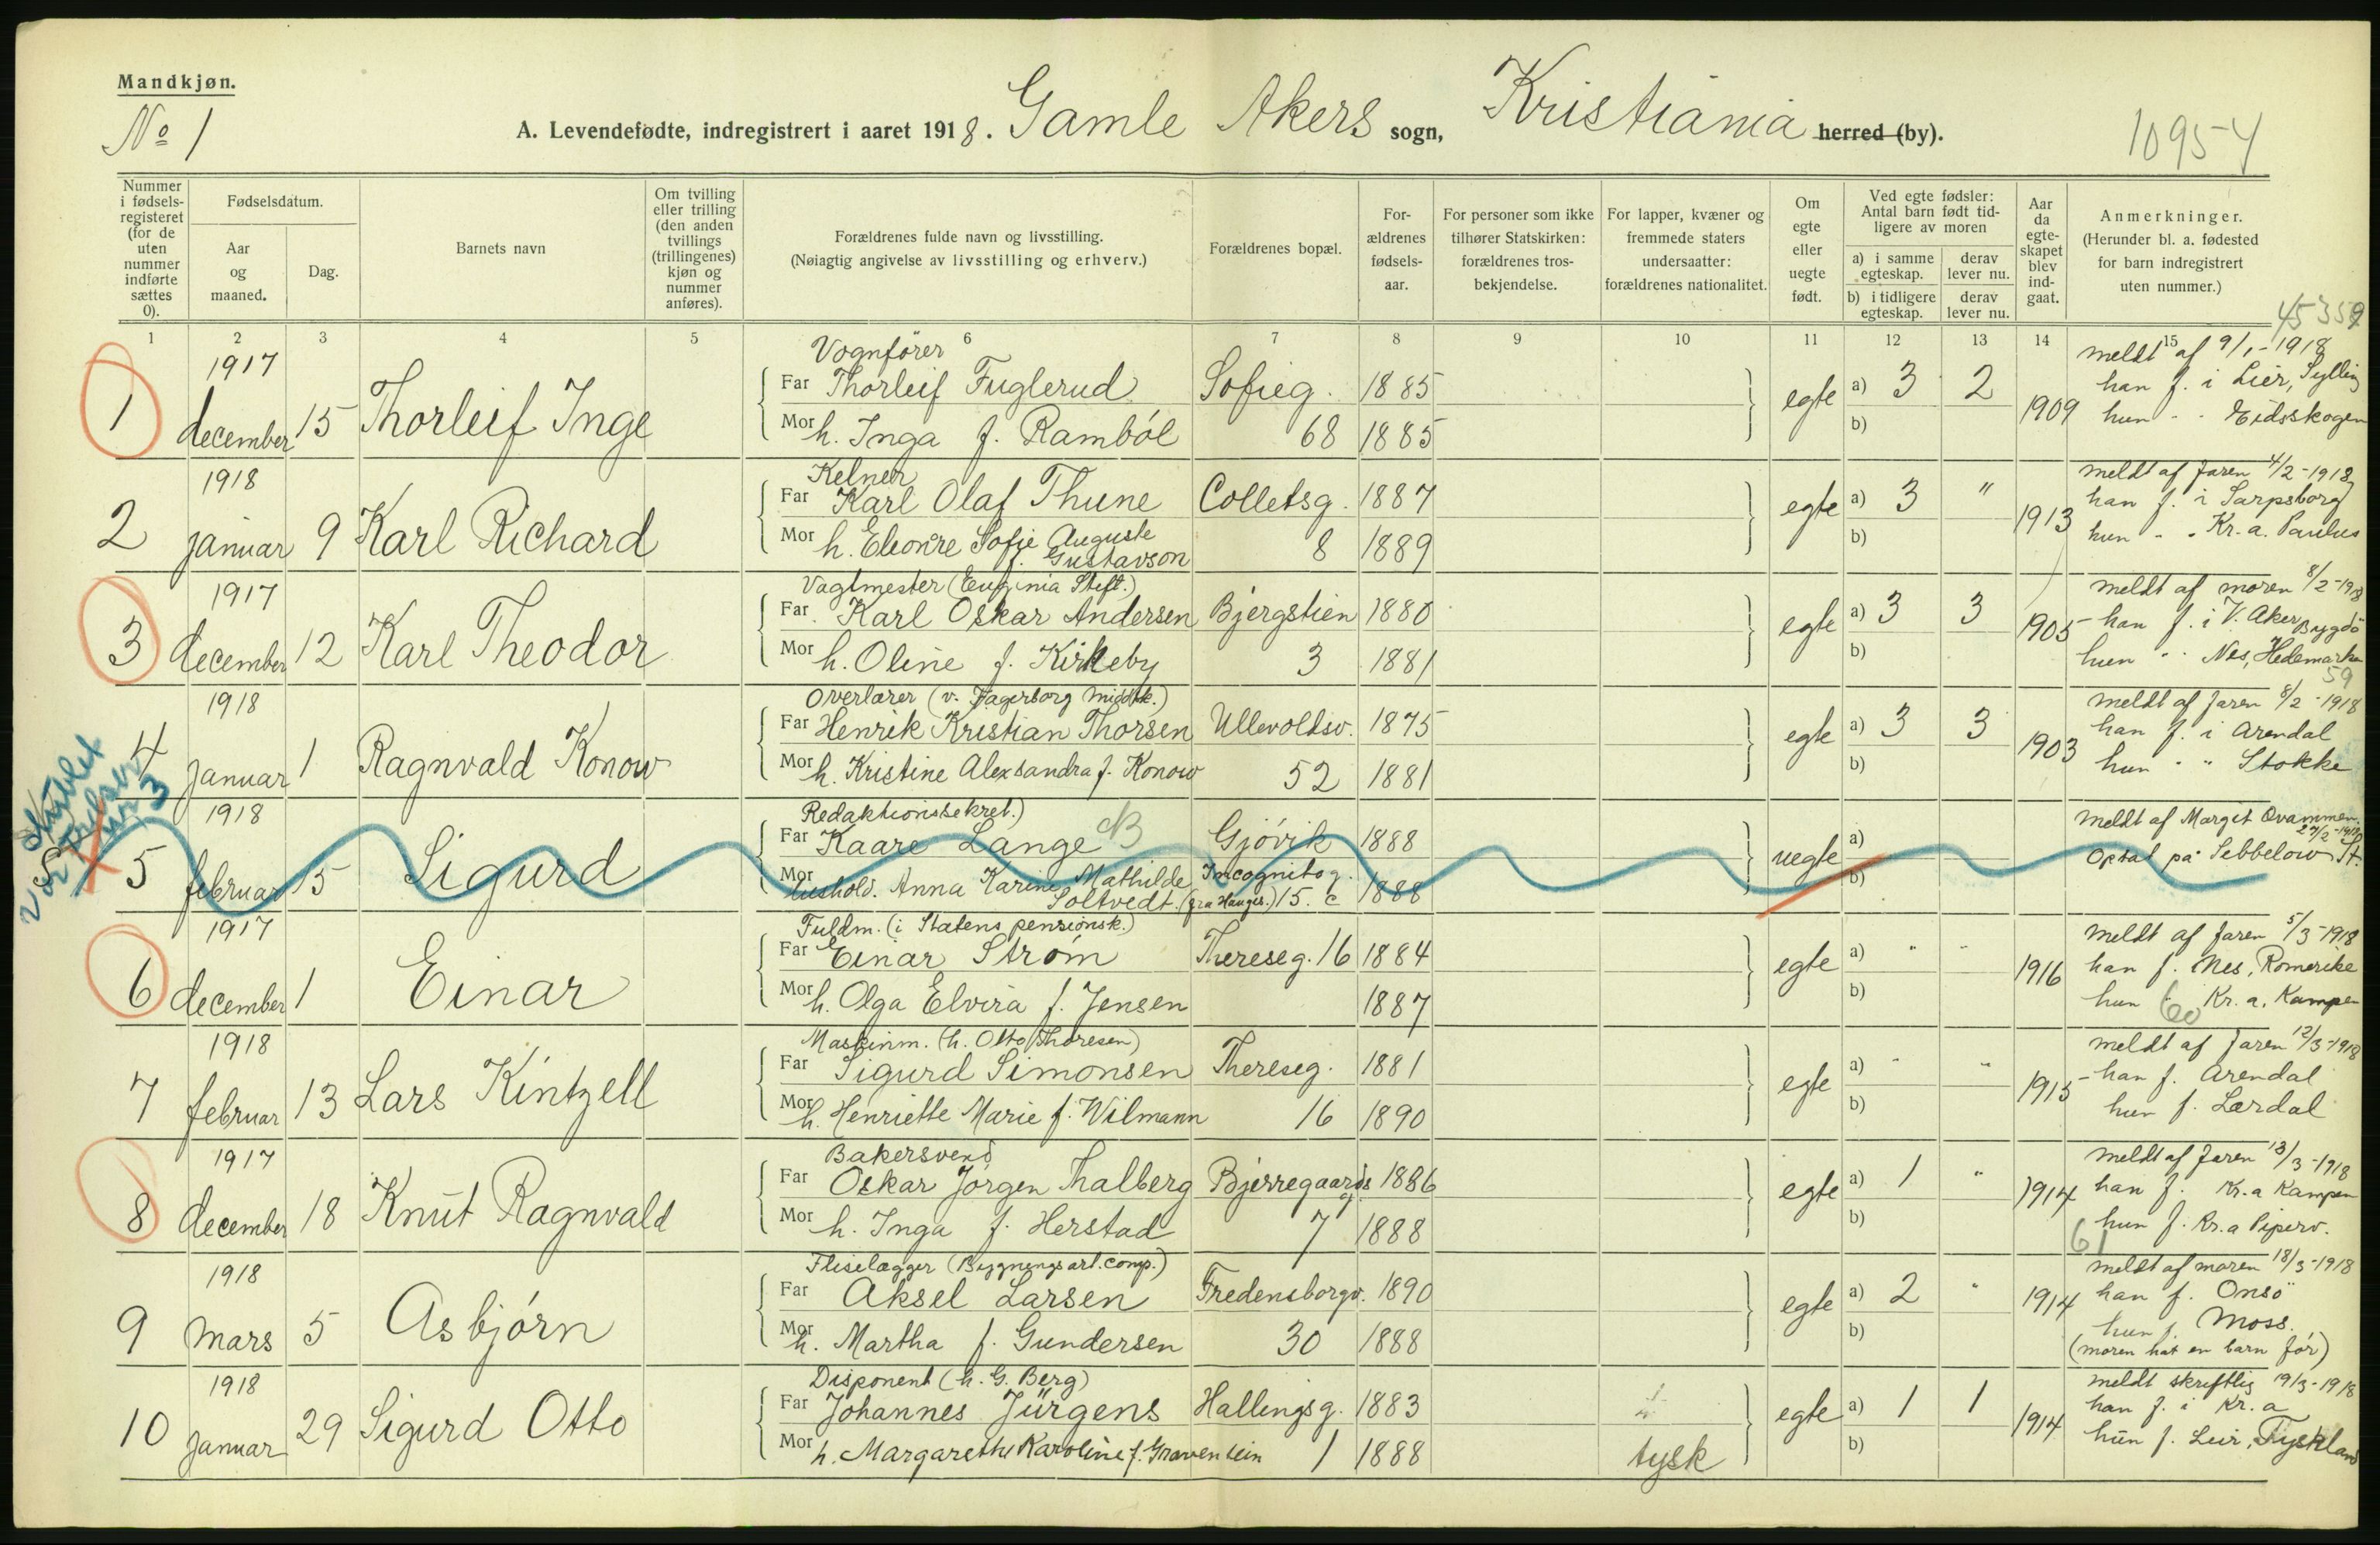 Mandkjøn.
No 1
A. Levendefødte, indregistrert i aaret 1918. Gamle Akers sogn, Kristiania herred (by).
10954
Nummer i fødsels-registeret (for de uten nummer indførte sættes 0).
Fødselsdatum.
Aar og maaned.
Dag.
Barnets navn
Om tvilling eller trilling (den anden tvillings (trillingenes) kjøn og nummer anføres).
Forældrenes fulde navn og livsstilling.
(Nøiagtig angivelse av livsstilling og erhverv.)
Forældrenes bopæl.
For-ældrenes fødsels-aar.
For personer som ikke tilhører Statskirken: forældrenes tros-bekjendelse.
For lapper, kvæner og fremmede staters undersaatter: forældrenes nationalitet.
Om egte eller uegte født.
Ved egte fødsler: Antal barn født tid-ligere av moren
a) i samme egteskap.
derav lever nu.
b) i tidligere egteskap.
derav lever nu.
Aar da egte-skapet blev ind-gaat.
Anmerkninger.
(Herunder bl. a. fødested for barn indregistrert uten nummer.)
45359
1 2 3 4 5 6 7 8 9 10 11 12 13 14 15
1917 Vognfører meldt af 9/1-1918
1 december 15 Thorleif Inge Far Thorleif Fuglerud Sofieg. 1885 egte a) 3 2 1909 han f. i Lier, Sylling
Mor h. Inga f. Ramból 68 1885 b) hun " " Eidsskogen
1918 Kelner meldt af faren 4/2-1918
2 januar 9 Karl Richard Far Karl Olaf Thune Colletsg. 1887 egte a) 3 " 1913 han f. i Sarpsborg
Mor h. Eleonore Sofie Auguste f. Gustavson 8 1889 b) hun " " Kr.a. Paulus
1917 Vagtmester (Euginia Stift.) meldt af moren 8/2-1918
3 december 12 Karl Theodor Far Karl Oskar Andersen Bjergstien 1880 egte a) 3 3 1905 han f. i V. Aker Bygdö
Mor h. Oline f. Kirkeby 3 1881 b) hun " " Nes, Hedemarken
59
1918 Overlærer (v. Fagerborg middsk.) meldt af faren 8/2-1918
4 januar 1 Ragnvald Konow Far Henrik Kristian Thorsen Ullevoldsv. 1875 egte a) 3 3 1903 han f. i Arendal
Mor h. Kristine Alexsandra f. Konow 52 1881 b) hun " " Stokke
1918 Redaktionssekret.) meldt af Margit Ovammen. 27/2-1918
5 februar 15 Sigurd Far Kaare Lange Gjóvik 1888 uegte a) Optat på Sebbelow St.
Mor hushold. Anna Karine Mathilde Soltvedt. (fra Hauges.) Incognitog. 15. c 1888 b)
1917 Fuldm. (i Statens pensionsk.) meldt af faren 5/3-1918
6 december 1 Einar Far Einar Strøm Thereseg. 16 1884 egte a) " " 1916 han f. Nes, Romerike
Mor h. Olga Elvira f. Jensen 1887 b) hun Kr.a. Kampen
60
1918 Maskinm. (h. Otto Thoresen) meldt af faren 12/3-1918
7 februar 13 Lars Kintzell Far Sigurd Simonsen Thereseg. 1881 egte a) " " 1915 han f. Arendal
Mor h. Henriette Marie f. Wilmann 16 1890 b) hun f. Lærdal
1917 Bakersvend meldt af faren 13/3-1918
8 december 18 Knut Ragnvald Far Oskar Jörgen Thalberg Bjerregaards g. 1886 egte a) 1 " 1914 han f. Kr.a Kampen
Mor h. Inga f. Herstad 7 1888 b) hun f. Kr.a Piperv.
61
1918 Fliselægger (Bygningsart. comp.) meldt af moren 18/3-1918
9 mars 5 Asbjórn Far Aksel Larsen Fredensborgv. 1890 egte a) 2 " 1914 han f. Onsö
Mor h. Martha f. Gundersen 30 1888 b) hun f. Moss.
(moren hat en barn før)
1918 Disponent (h. G. Berg) meldt skriftlig 19/3-1918
10 januar 29 Sigurd Otto Far Johannes Jürgens Hallingsg. 1883 egte a) 1 1 1914 han f. i Kr.a
Mor h. Margarethe Karoline f. Gravenstein 1 1888 tysk b) hun f. Leir, Tyskland